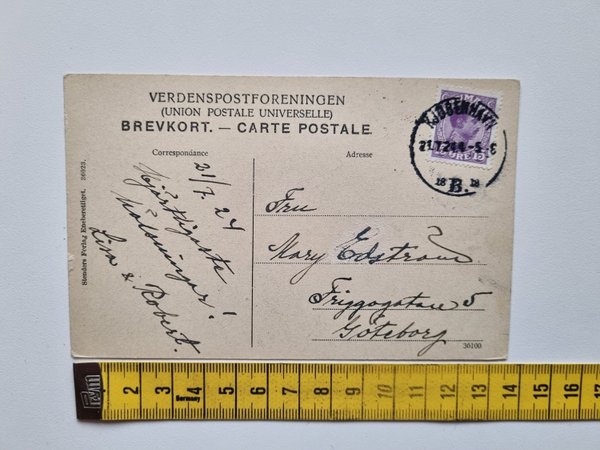 VERDENSPOSTFORENINGEN
(UNION POSTALE UNIVERSELLE)
BREVKORT. — CARTE POSTALE.
Correspondance
Adresse
KJØBENHAVN
21.7.24 4-5 E
18 B. 18
21/7. 24
Hjärtligaste
hälsningar!
Lisa & Robert.
Fru
Mary Edström
Friggagatan 5
Göteborg
Stenders Forlag Eneberettiget. 36023.
36100
2 3 4 5 6 7 8 9 10 11 12 13 14 15 16 17
Germany